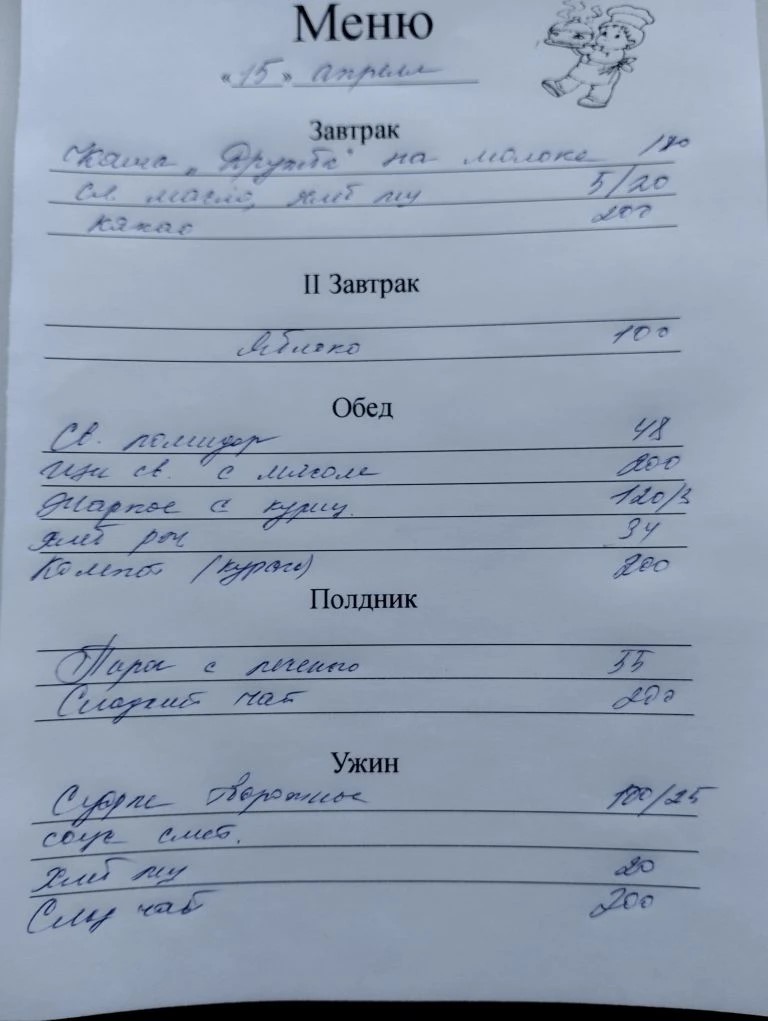 Меню
«15» апреля
Завтрак
Каша "Дружба" на молоке 180
Сл. масло, хлеб пш 5/20
Какао 200
II Завтрак
Яблоко 100
Обед
Св. помидор 48
Щи св. с мясом 200
Жаркое с куриц. 120/3
Хлеб рж 34
Компот (курага) 200
Полдник
с печенью 55
Сладкий чай 200
Ужин
творожное 100/25
соус смет.
Хлеб пш 20
Слад чай 200